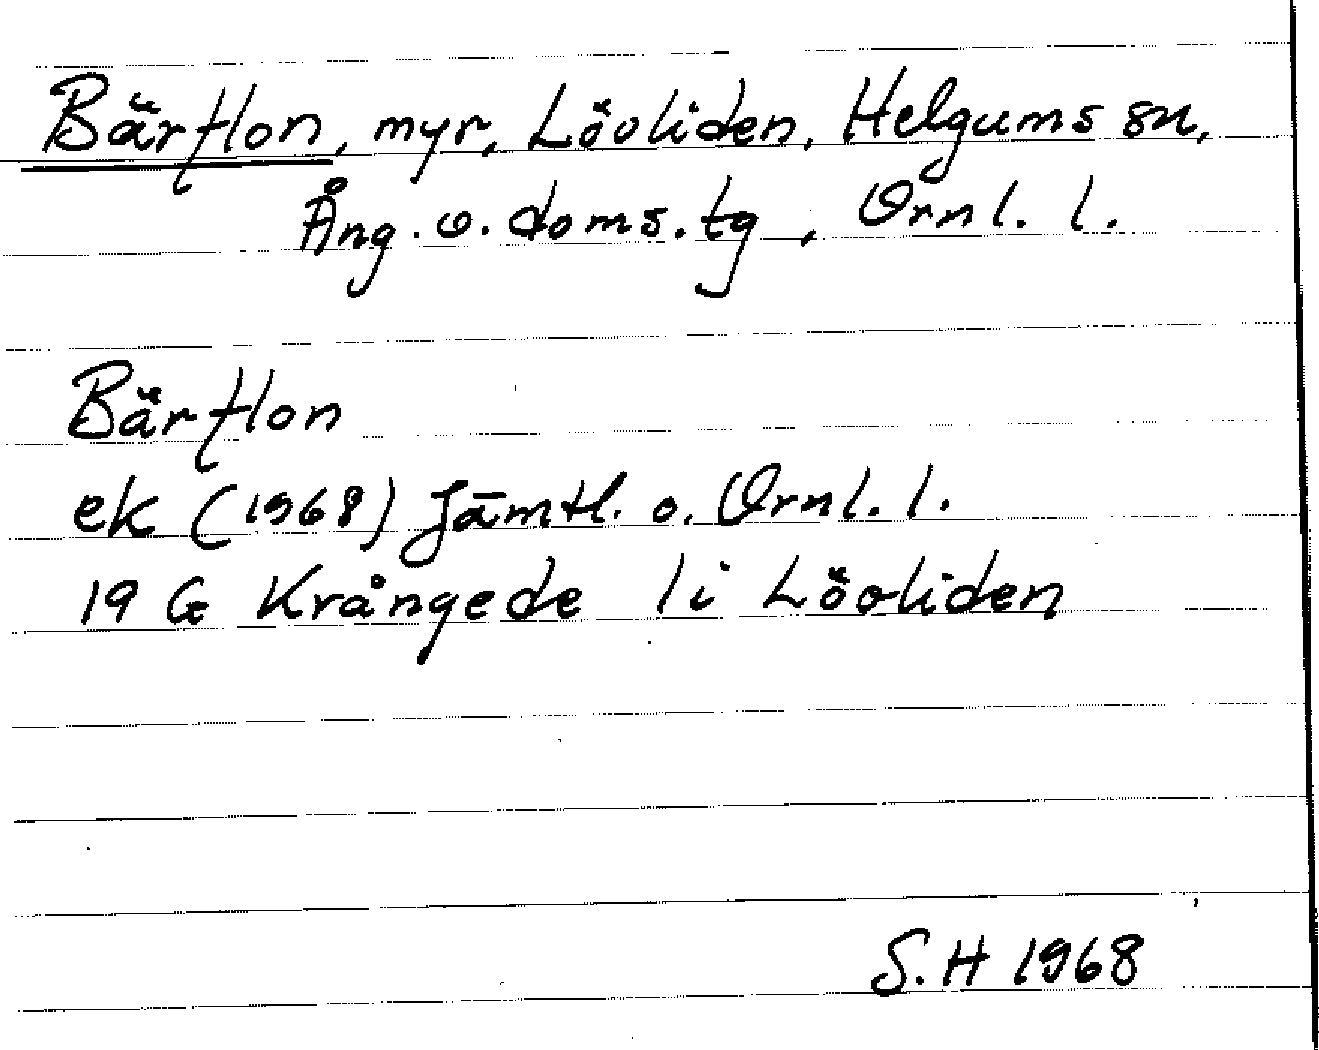 Bärflon, myr, Lövliden, Helgums sn,
Ång. v. doms. tg, Vrnl. l.
Bärflon
ek (1968) Jämtl. o. Vrnl. l.
19 G Krångede li Lövliden
S.H 1968